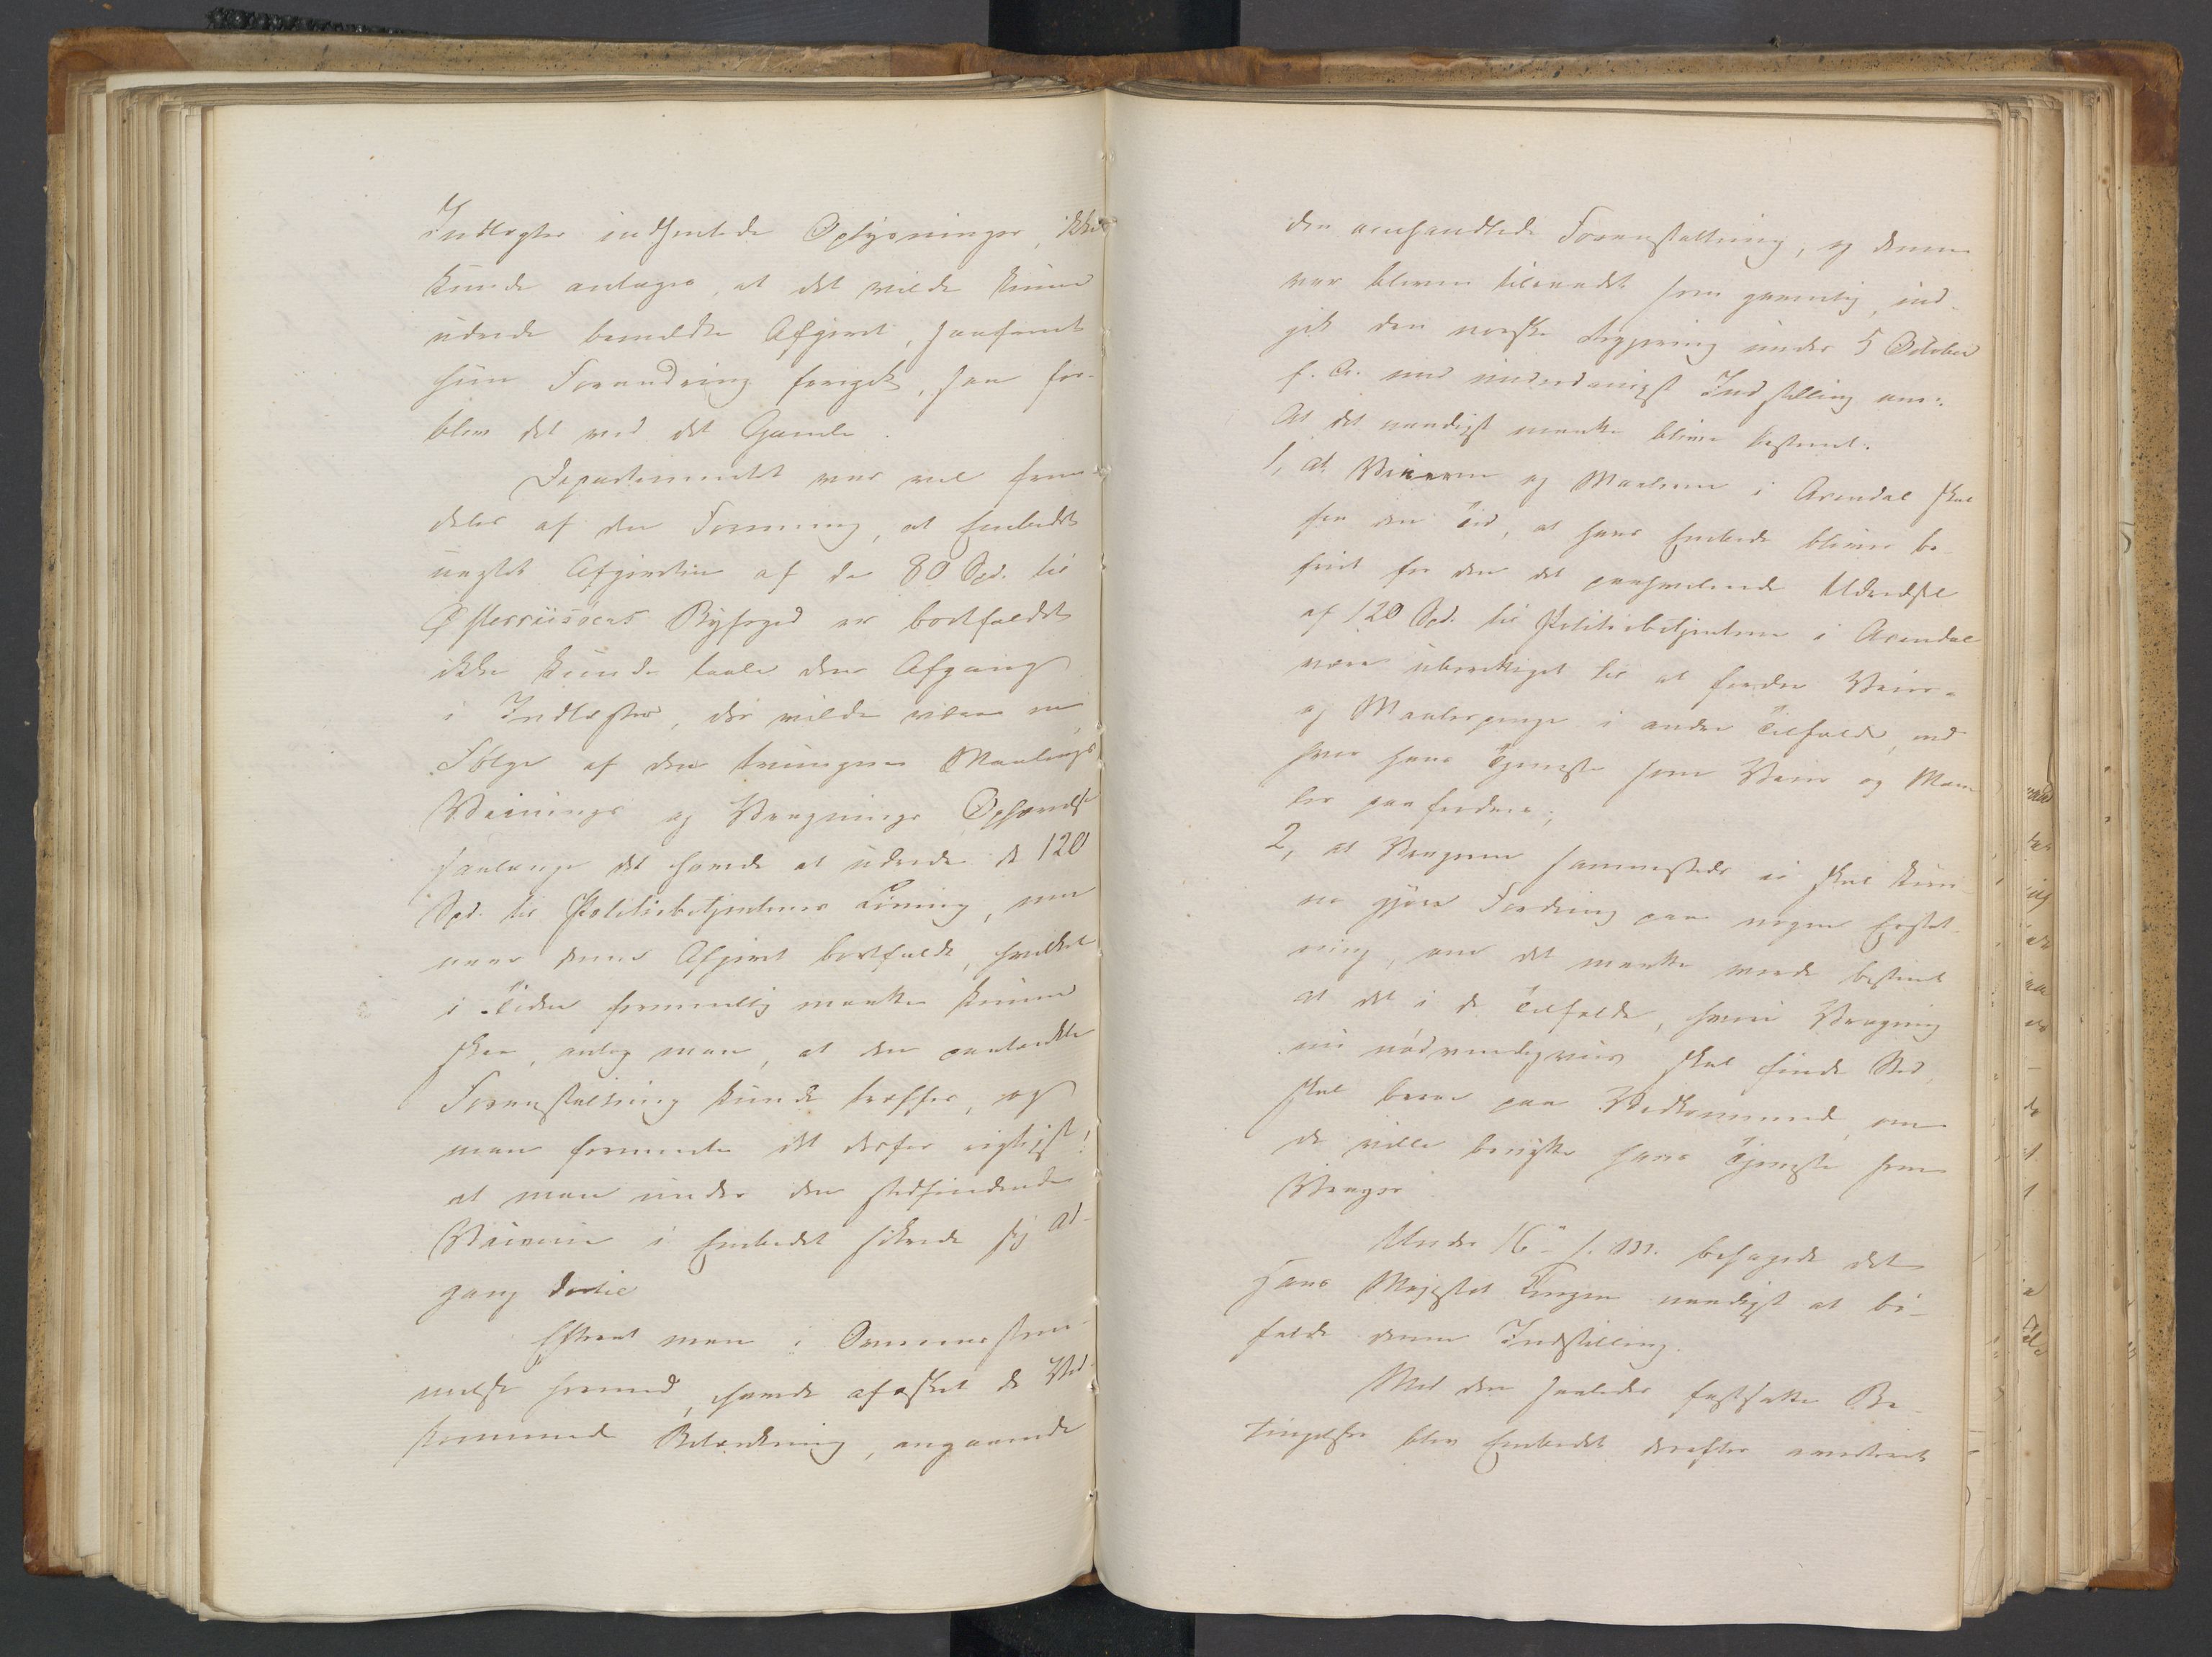 Indtægter indhentede Oplysninger, ikke
kunde antages, at det vilde kunne
udrede bemeldte Afgivt, saafremt
hiin Forandring foregik, saa for-
blev det ved det Gamle.
Departementet var vel frem-
deles af den Formening, at Embedet
uagtet Afgivten af de 80 Spd. til
Østerriisöens Byfoged er bortfaldet
ikke kunde taale den Afgang
i Indtægter, der vilde være en
Følge af den tvungne Maalings
Veinings og Vragnings Ophævelse
saalænge det havde at udrede de 120
Spd. til Politiebetjentenes Lönning, men
naar denne Afgivt bortfaldt, hvilket
i Tiden formentlig maatte kunne
skee, antog man, at den paatænkte
Foranstaltning kunde træffes, og
man formente det derfor rigtigst!
at man under den stedfindende
Vacance i Embedet sikrede sig Ad-
gang dertil
Efterat man i Overensstem-
melse hermed, havde afæsket de Ved-
kommende Betænkning, angaaende
den omhandlede Foranstaltning, og denne
var bleven tilraadet som gavnlig, ind-
gik den norske Regjering under 5 October
f. A. med underdanigst Indstilling om:
At det naadigst maatte blive bestemt:
1, at Veieren og Maaleren i Arendal skal
fra den Tid, at hans Embede bliver be-
friet for den det paahvilende Udredsel
af 120 Spd. til Politiebetjentene i Arendal
være uberettiget til at fordre Veier-
og Maalerpenge i andre Tilfælde, end
hvor hans Tjeneste som Veier og Maa-
ler paafordres;
2, at Vrageren sammesteds ei skal kun-
ne gjöre Fordring paa nogen Erstat-
ning, om det maatte vorde bestemt
at det i de Tilfælde, hvori Vragning
nu nödvendigviis skal finde Sted,
skal beroe paa Vedkommende, om
de ville benytte hans Tjeneste som
Vrager
Under 16de s. M. behagede det
Hans Majestæt Kongen naadigst at bi-
falde denne Indstilling.
Med den saaledes fastsatte Be-
tingelse blev Embedet derefter averteret